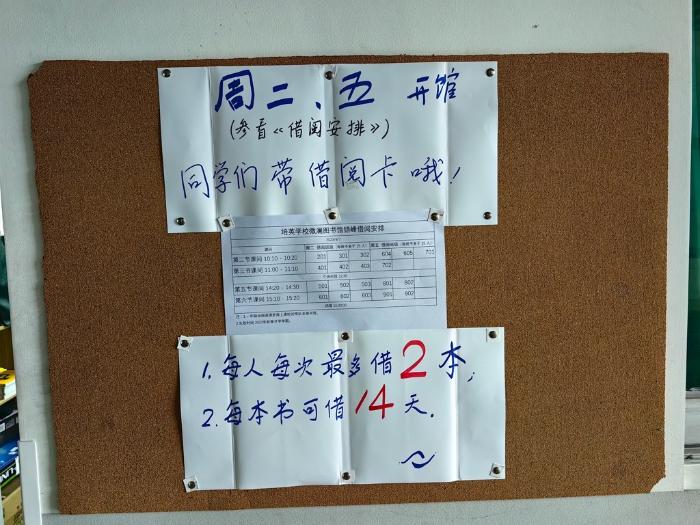 周二、五 开馆
(参看《借阅安排》)
同学们带借阅卡哦!
培英学校微澜图书馆错峰借阅安排
课间 周二 借阅班级 周五 借阅班级
第二节课间 10:10 - 10:20 201 301 302 604 605 701
第三节课间 11:00 - 11:10 401 402 403 702
第五节课间 14:20 - 14:30 501 502 503 801 802
第六节课间 15:10 - 15:20 601 602 603 901 902
1. 每人每次最多借2本;
2. 每本书可借14天.